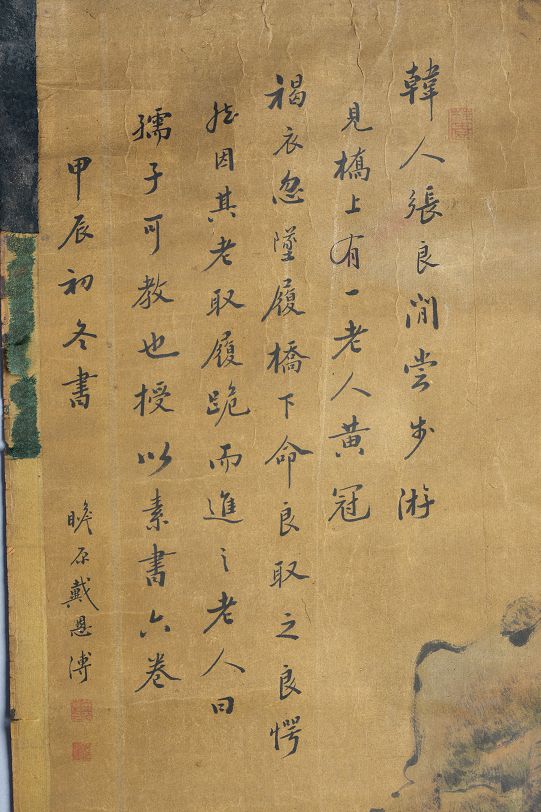 韓人張良閒嘗步游
見橋上有一老人黃冠
褐衣忽墜履橋下命良取之良愕
然因其老取履跪而進之老人曰
孺子可教也授以素書六卷
甲辰初冬書
瞻原戴恩溥